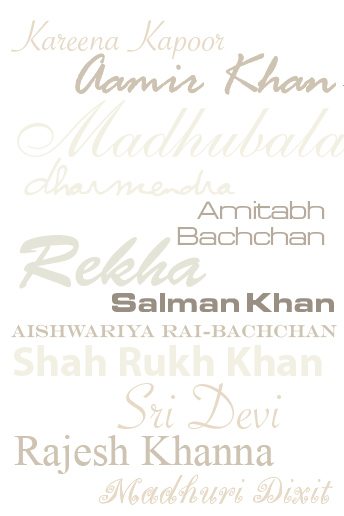 Kareena Kapoor
Aamir Khan
Madhubala
dharmendra
Amitabh
Bachchan
Rekha
Salman Khan
AISHWARIYA RAI-BACHCHAN
Shah Rukh Khan
Sri Devi
Rajesh Khanna
Madhuri Dixit